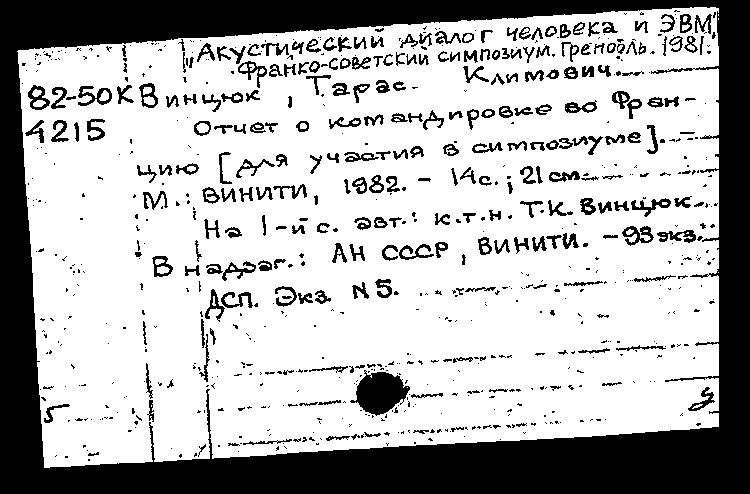 "Акустический диалог человека и ЭВМ",
Франко-советский симпозиум. Гренобль. 1981.
82-50К Винцюк, Тарас Климович.
4215 Отчет о командировке во Фран-
цию [для участия в симпозиуме]. -
М.: ВИНИТИ, 1982. - 14с.; 21см.
На 1-й с. авт.: к.т.н. Т.К. Винцюк.
В надзаг.: АН СССР, ВИНИТИ. - 93 экз.
ДСП. Экз. N 5.
5